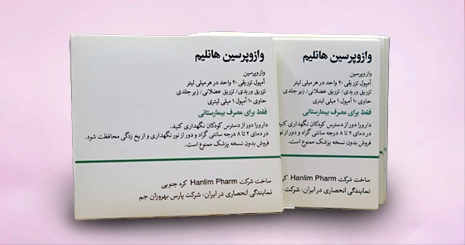 وازوپرسین هانلیم
وازوپرسین
آمپول تزریقی ۲۰ واحد در هر میلی لیتر
تزریق وریدی/ تزریق عضلانی/ زیر جلدی
حاوی ۱۰ آمپول ۱ میلی لیتری
فقط برای مصرف بیمارستانی
دارو را دور از دسترس کودکان نگهداری کنید.
در دمای ۲ تا ۸ درجه سانتی گراد و دور از نور نگهداری و از یخ زدگی محافظت شود.
فروش بدون نسخه پزشک ممنوع است.
ساخت شرکت Hanlim Pharm کره جنوبی
نمایندگی انحصاری در ایران، شرکت پارس بهروزان جم
وازوپرسین هانلیم
وازوپرسین
آمپول تزریقی ۲۰ واحد در هر میلی لیتر
تزریق وریدی/ تزریق عضلانی/ زیر جلدی
حاوی ۱۰ آمپول ۱ میلی لیتری
فقط برای مصرف بیمارستانی
دارو را دور از دسترس کودکان نگهداری کنید.
در دمای ۲ تا ۸ درجه سانتی گراد و دور از
فروش بدون نسخه پزشک ممنوع است.
ساخت شرکت Hanlim Pharm کره جنوبی
نمایندگی انحصاری در ایران، شرکت پارس بهروزان جم